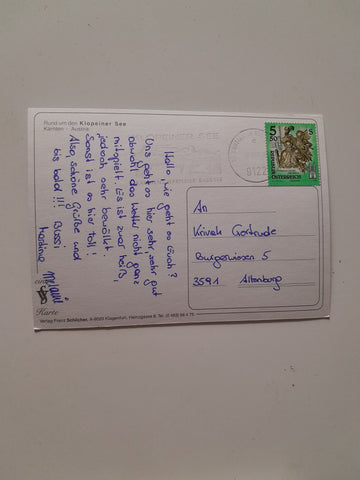 Rund um den Klopeiner See
Kärnten - Austria
Hallo, wie geht es Euch?
Uns geht es hier sehr, sehr gut
obwohl das Wetter nicht ganz
mitspielt. Es ist zwar heiß,
jedoch sehr bewölkt.
Sonst ist es hier toll!
Also, schöne Grüße und
bis bald!!! Bussi
Karte
Verlag Franz Schilcher, A-9020 Klagenfurt
KLOPEINER SEE
9122
5 50
S
REPUBLIK
ÖSTERREICH
An
Gertrude
Burgerwiesen 5
3591 Altenburg